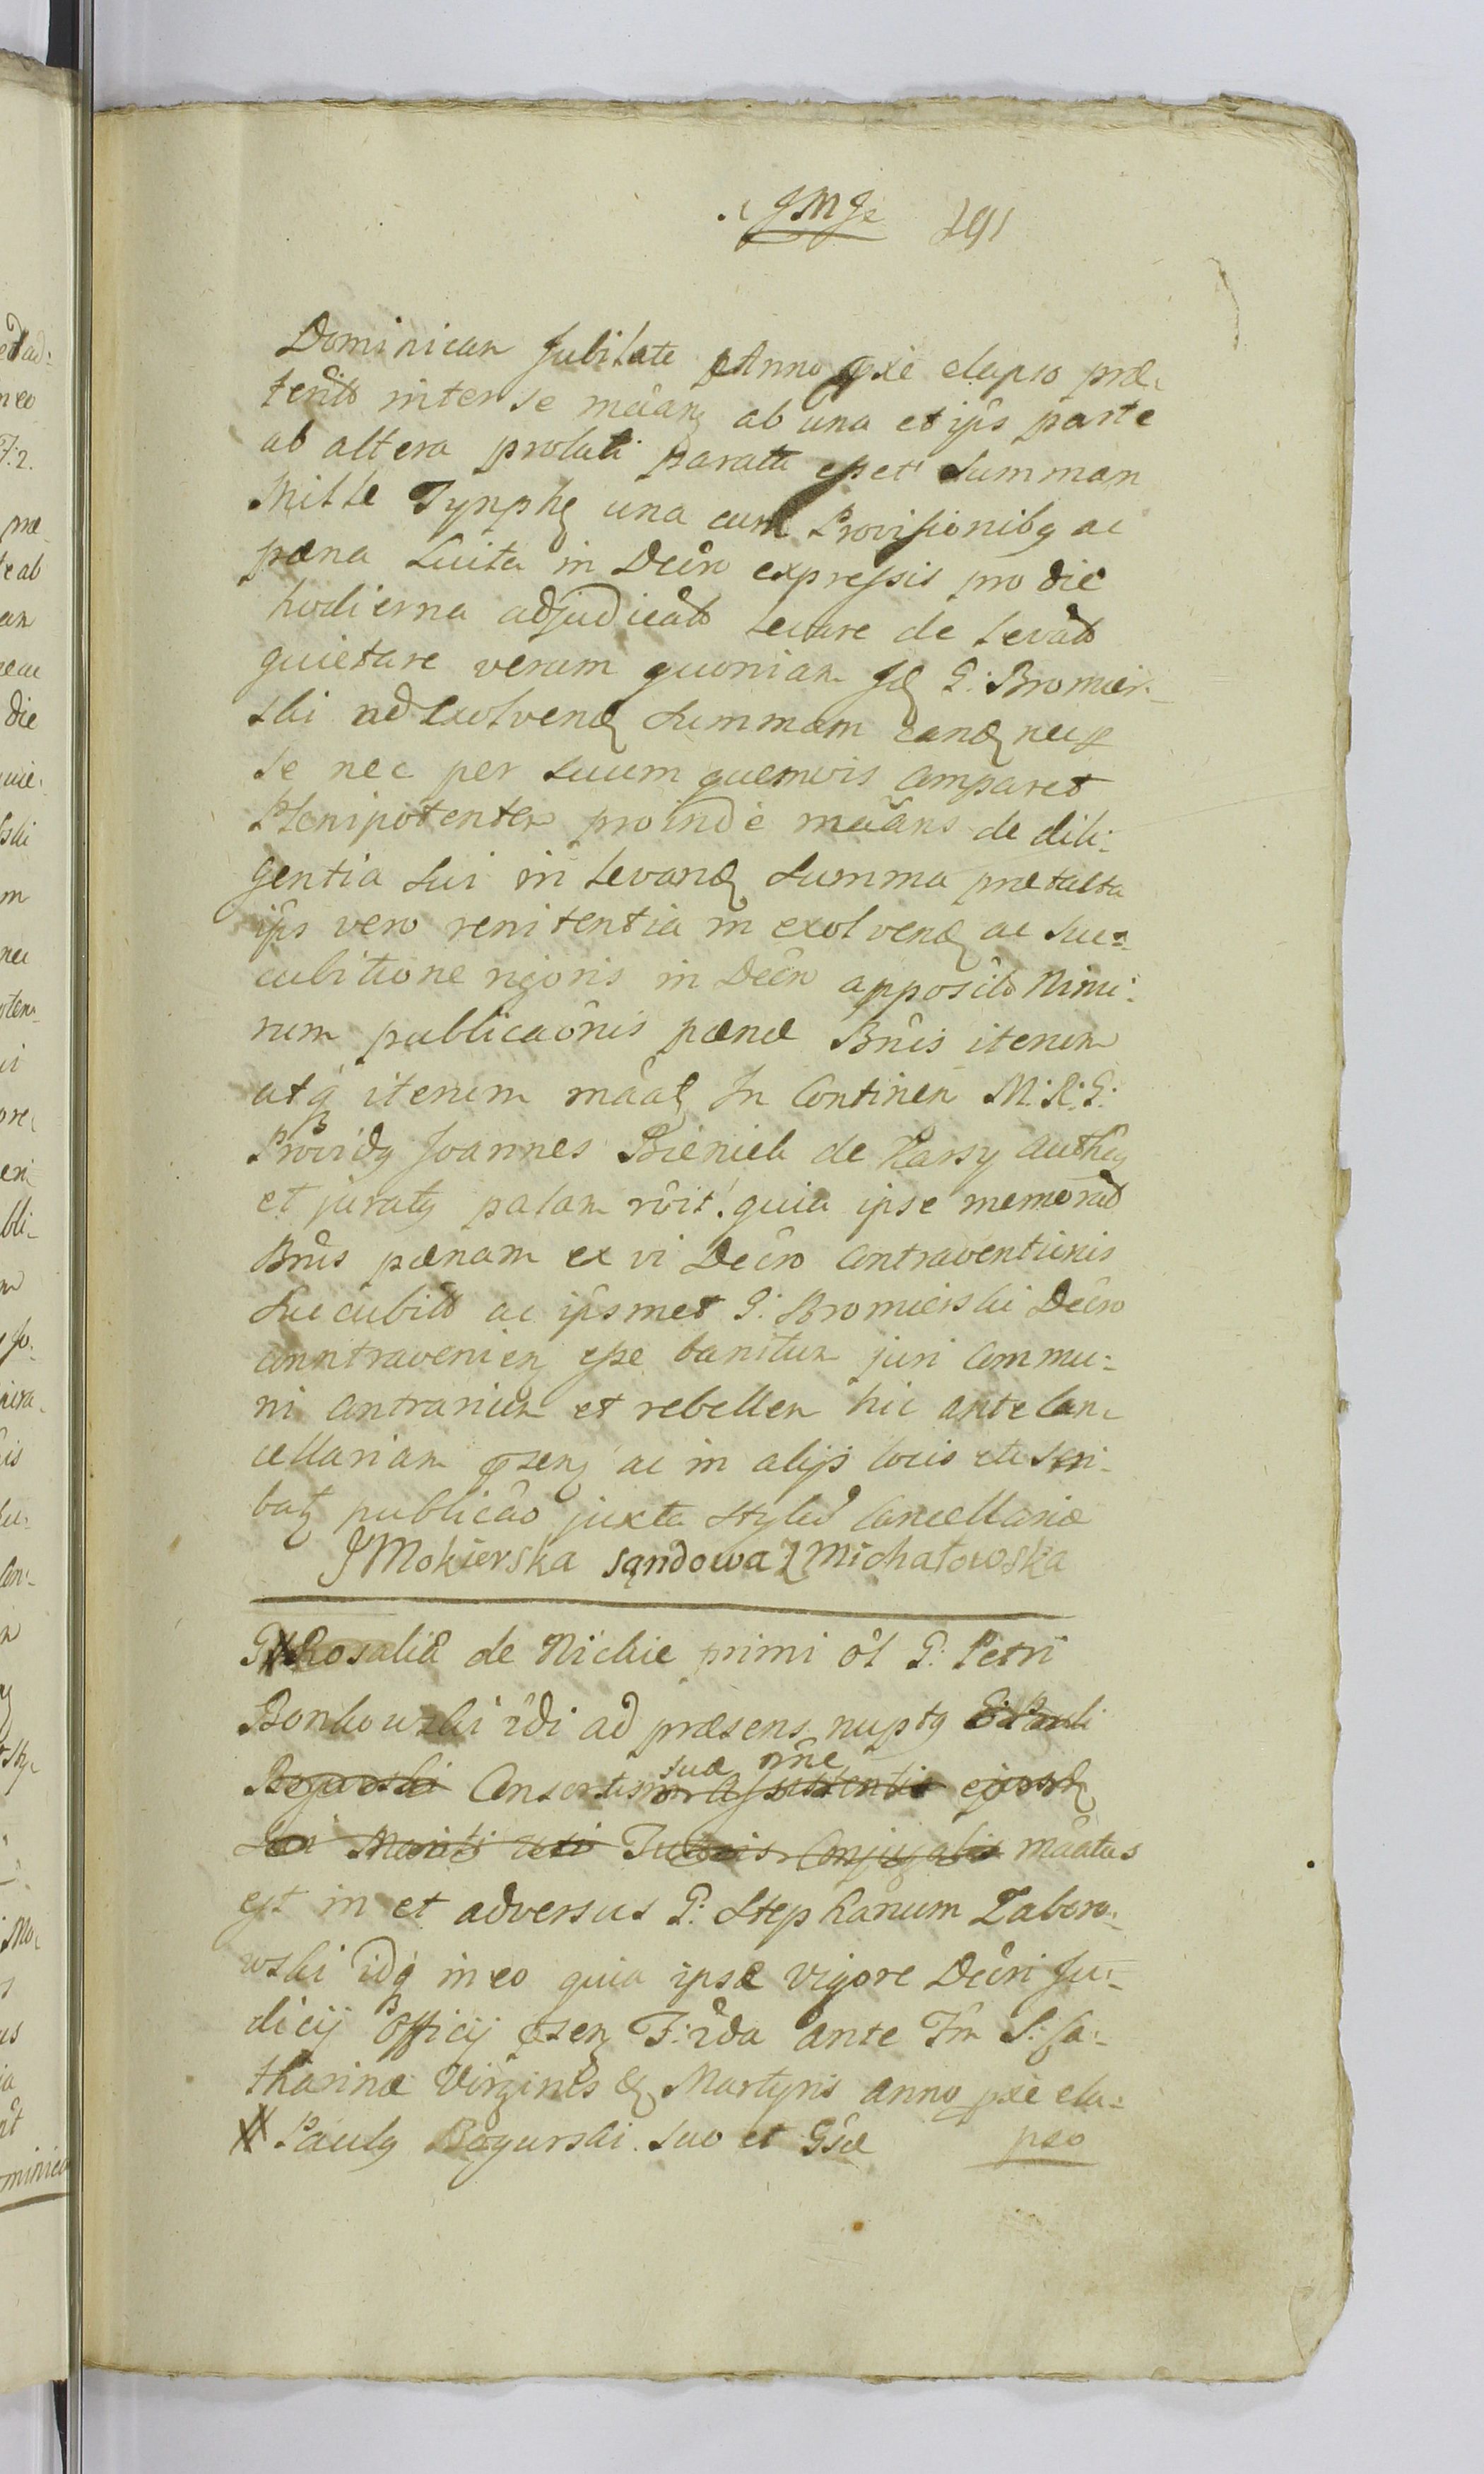 JMJ 191
Dominicam Jubilate Anno pxe elapso præ-
terito inter se mâanq ab una et ips parte
ab altera prolati parata esset Summam
Mille Tynph una cum Provisionibq ac
pæna Luita in Decro expressis pro die
hodierna adjudicato levare de levato
quietare verum quoniam G: Bromier-
ski ad exolvend Summam eand nec p
se nec per suum quemvis Comparet
Plenipotentem proinde mâans de dili-
gentia sui in levand Summa prætacta
ips vero renitentia in exolvend ac Suc-
cubitione rigoris in Decro apposito Nimi-
rum publicaônis pænæ Bnis iterum
atq iterum mâat In Continen M: R: G:
Providq Joannes Bieniek de Kassy Auth
et juratq palam rôit quia ipse memorat
Bnis pænam ex vi Decro Contraventionis
Succubito ac ipsmet G: Bromierski Decro
Conntravenien esse banitum juri Commu-
ni Contrarium et rebellem hic ante Can-
cellariam psen ac in alijs locis
publicâo juxta Styled Cancellariæ
JMokierska sądowa Z Michałowska
G Rosalia de Nickie primi ol G: Petri
Bonkowski 2di ad præsens nuptq Pauli
Bogurski Consortis suæ nne
Mariti uti Tutoris Conjugalis mâatus
est in et adversus G: Stephanum Zaboro-
wski idq in eo quia ipsa vigore Decri Ju-
dicij Officij psen F: 2da ante Fm S: Ca-
tharinæ Virginis & Martyris anno pxe ela-
Paulq Bogurski suo et Gsæ pso